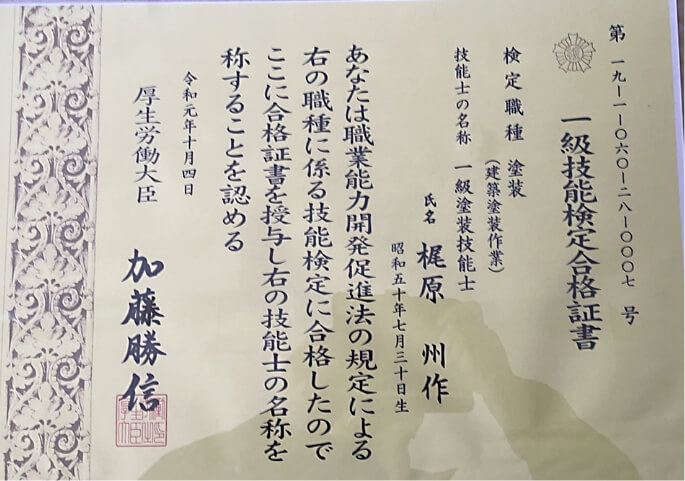 第一九-一-〇六〇-二八-〇〇〇七号
一級技能検定合格証書
検定職種 塗装
(建築塗装作業)
技能士の名称 一級塗装技能士
氏名 梶原 州作
昭和五十年七月三十日生
あなたは職業能力開発促進法の規定による
右の職種に係る技能検定に合格したので
ここに合格証書を授与し右の技能士の名称を
称することを認める
令和元年十月四日
厚生労働大臣 加藤勝信